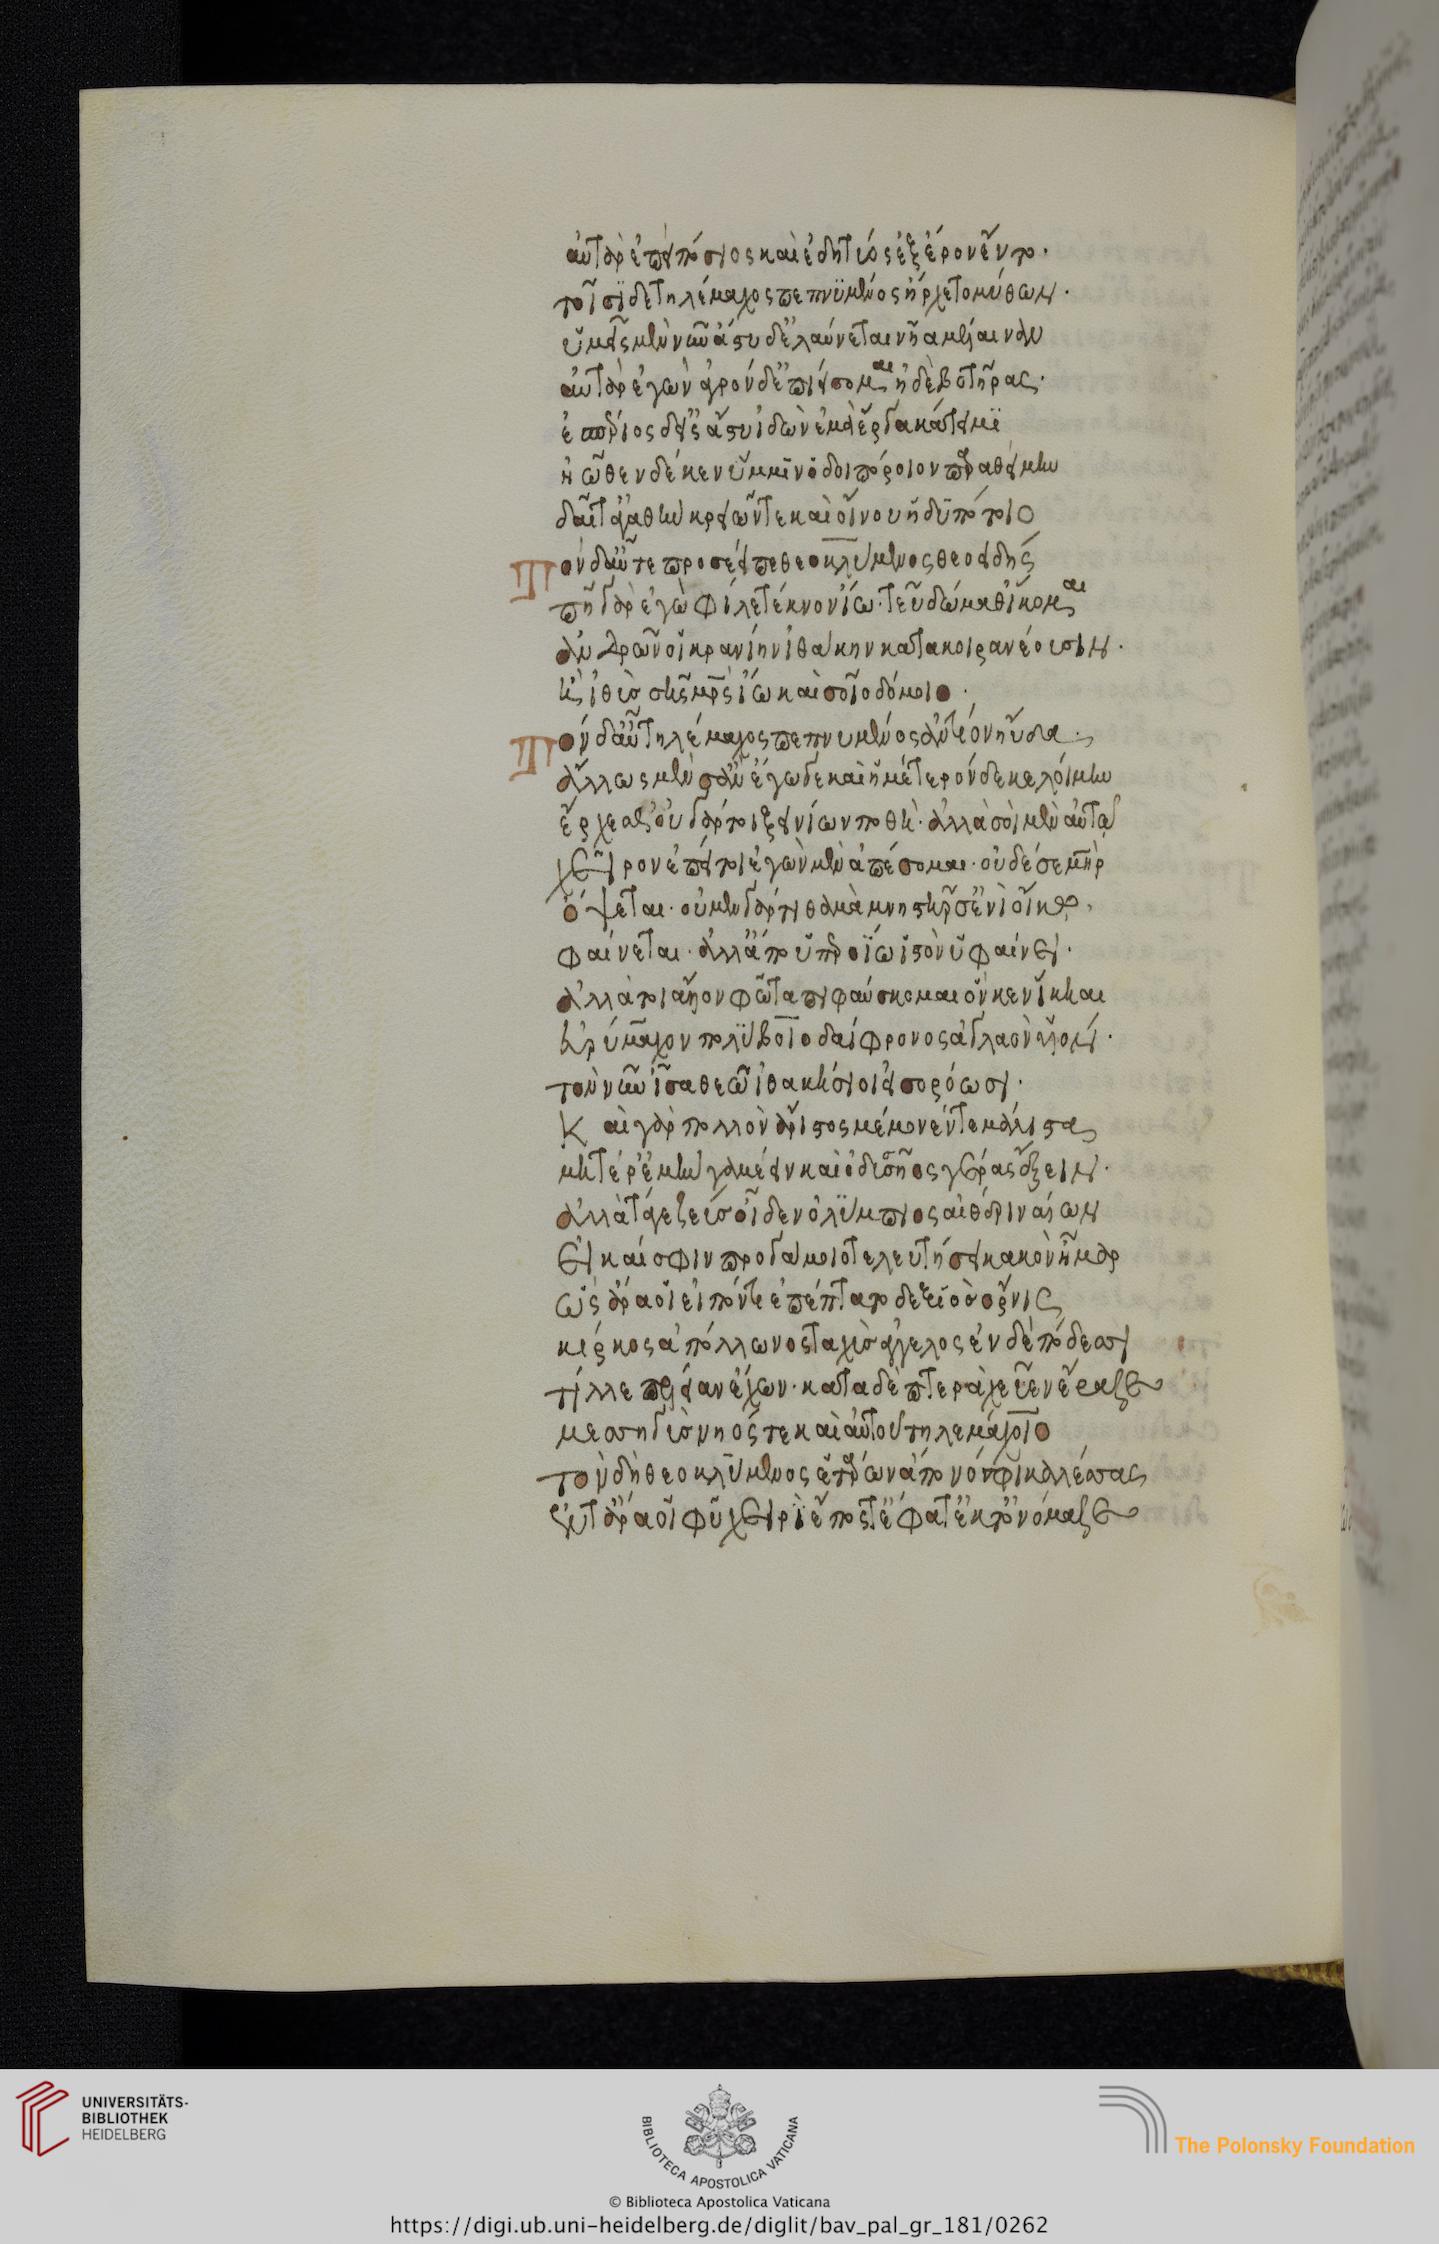 αὐτὰρ ἐπεὶ πόσιος καὶ ἐδητύος ἐξ ἔρον ἕντο·
τοῖσι δὲ τηλέμαχος πεπνυμένος ἤρχετο μύθων·
ὑμεῖς μὲν νῦν ἄστυδ' ἐλαύνεται νῆα μέλαιναν
αὐτὰρ ἐγὼν ἀγρούνδ' ἐπιείσομαι ἠδὲ βοτῆρας·
ἑσπέριος δ' εἰς ἄστυ ἰδὼν ἐμὰ ἔργα κάτειμι
ἠῶθεν δέ κεν ὔμμιν ὁδοιπόριον παραθείμην
δαῖτ' ἀγαθὴν κρειῶν τε καὶ οἴνου ἡδυπότοιο
Τὸν δ' αὖτε προσέειπε θεοκλύμενος θεοειδής
πῆ γὰρ ἐγὼ φίλε τέκνον ἴω· τεῦ δώμαθ' ἵκομαι
ἀνδρῶν οἳ κραναὴν ἰθάκην κατακοιρανέουσιν·
ἢ ἰθὺς σῆς μητρὸς ἴω καὶ σοῖο δόμοιο·
Τὸν δ' αὖ τηλέμαχος πεπνυμένος ἀντίον ηὔδα·
ἄλλως μέν σ' ἂν ἔγωγε καὶ ἡμέτερόνδε κελοίμην
ἔρχεσθ' οὐ γάρ τοι ξενίων ποθή· ἀλλὰ σοὶ μὲν αὐτῷ
χεῖρον ἐπεί τοι ἐγὼν μὲν ἀπέσομαι· οὐδέ σε μήτηρ
ὄψεται· οὐ μὲν γάρ τι θαμὰ μνηστῆρσ' ἐνὶ οἴκῳ·
φαίνεται· ἀλλ' ἄπο ὑπερωίω ἱστὸν ὑφαίνει·
ἀλλά τοι ἄλλον φῶτα πιφαύσκομαι ὅν κεν ἵκηαι
εὐρύμαχον πολύβοιο δαίφρονος ἀγλαὸν υἱόν·
τὸν νῦν ἶσα θεῷ ἰθακήσιοι εἰσορόωσι·
Καὶ γὰρ πολλὸν ἄριστος μέμονέν τε μάλιστα
μητέρ' ἐμὴν γαμέειν καὶ ὀδυσσῆος γέρας ἕξειν·
ἀλλὰ τάγε ζεὺς οἶδεν ὀλύμπιος αἰθέρι ναίων
εἰ καί σφιν πρὸ γάμοιο τελευτήσει κακὸν ἦμαρ
ὣς ἄρα οἱ εἰπόντι ἐπέπτατο δεξιὸς ὄρνις
κίρκος ἀπόλλωνος ταχὺς ἄγγελος ἐν δὲ πόδεσσι
τίλλε πέλειαν ἔχων· κατὰ δὲ πτερὰ χεῦεν ἔραζε
μεσσηγὺς νηός τε καὶ αὐτοῦ τηλεμάχοιο
τὸν δὲ θεοκλύμενος ἑτάρων ἀπονόσφι καλέσσας
ἔν τ' ἄρα οἱ φῦ χειρὶ ἔπος τ' ἔφατ' ἔκ τ' ὀνόμαζε
UNIVERSITÄTS-
BIBLIOTHEK
HEIDELBERG
BIBLIOTECA APOSTOLICA VATICANA
The Polonsky Foundation
© Biblioteca Apostolica Vaticana
https://digi.ub.uni-heidelberg.de/diglit/bav_pal_gr_181/0262